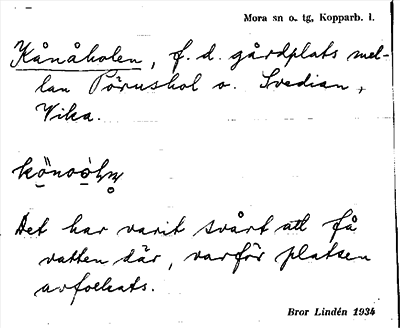 Mora sn o. tg, Kopparb. l.
Kånåholen, f. d. gårdplats mel-
lan Pörushol o. Svedian,
Vika.
Det har varit svårt att få
vatten där, varför platsen
avfolkats.
Bror Lindén 1934